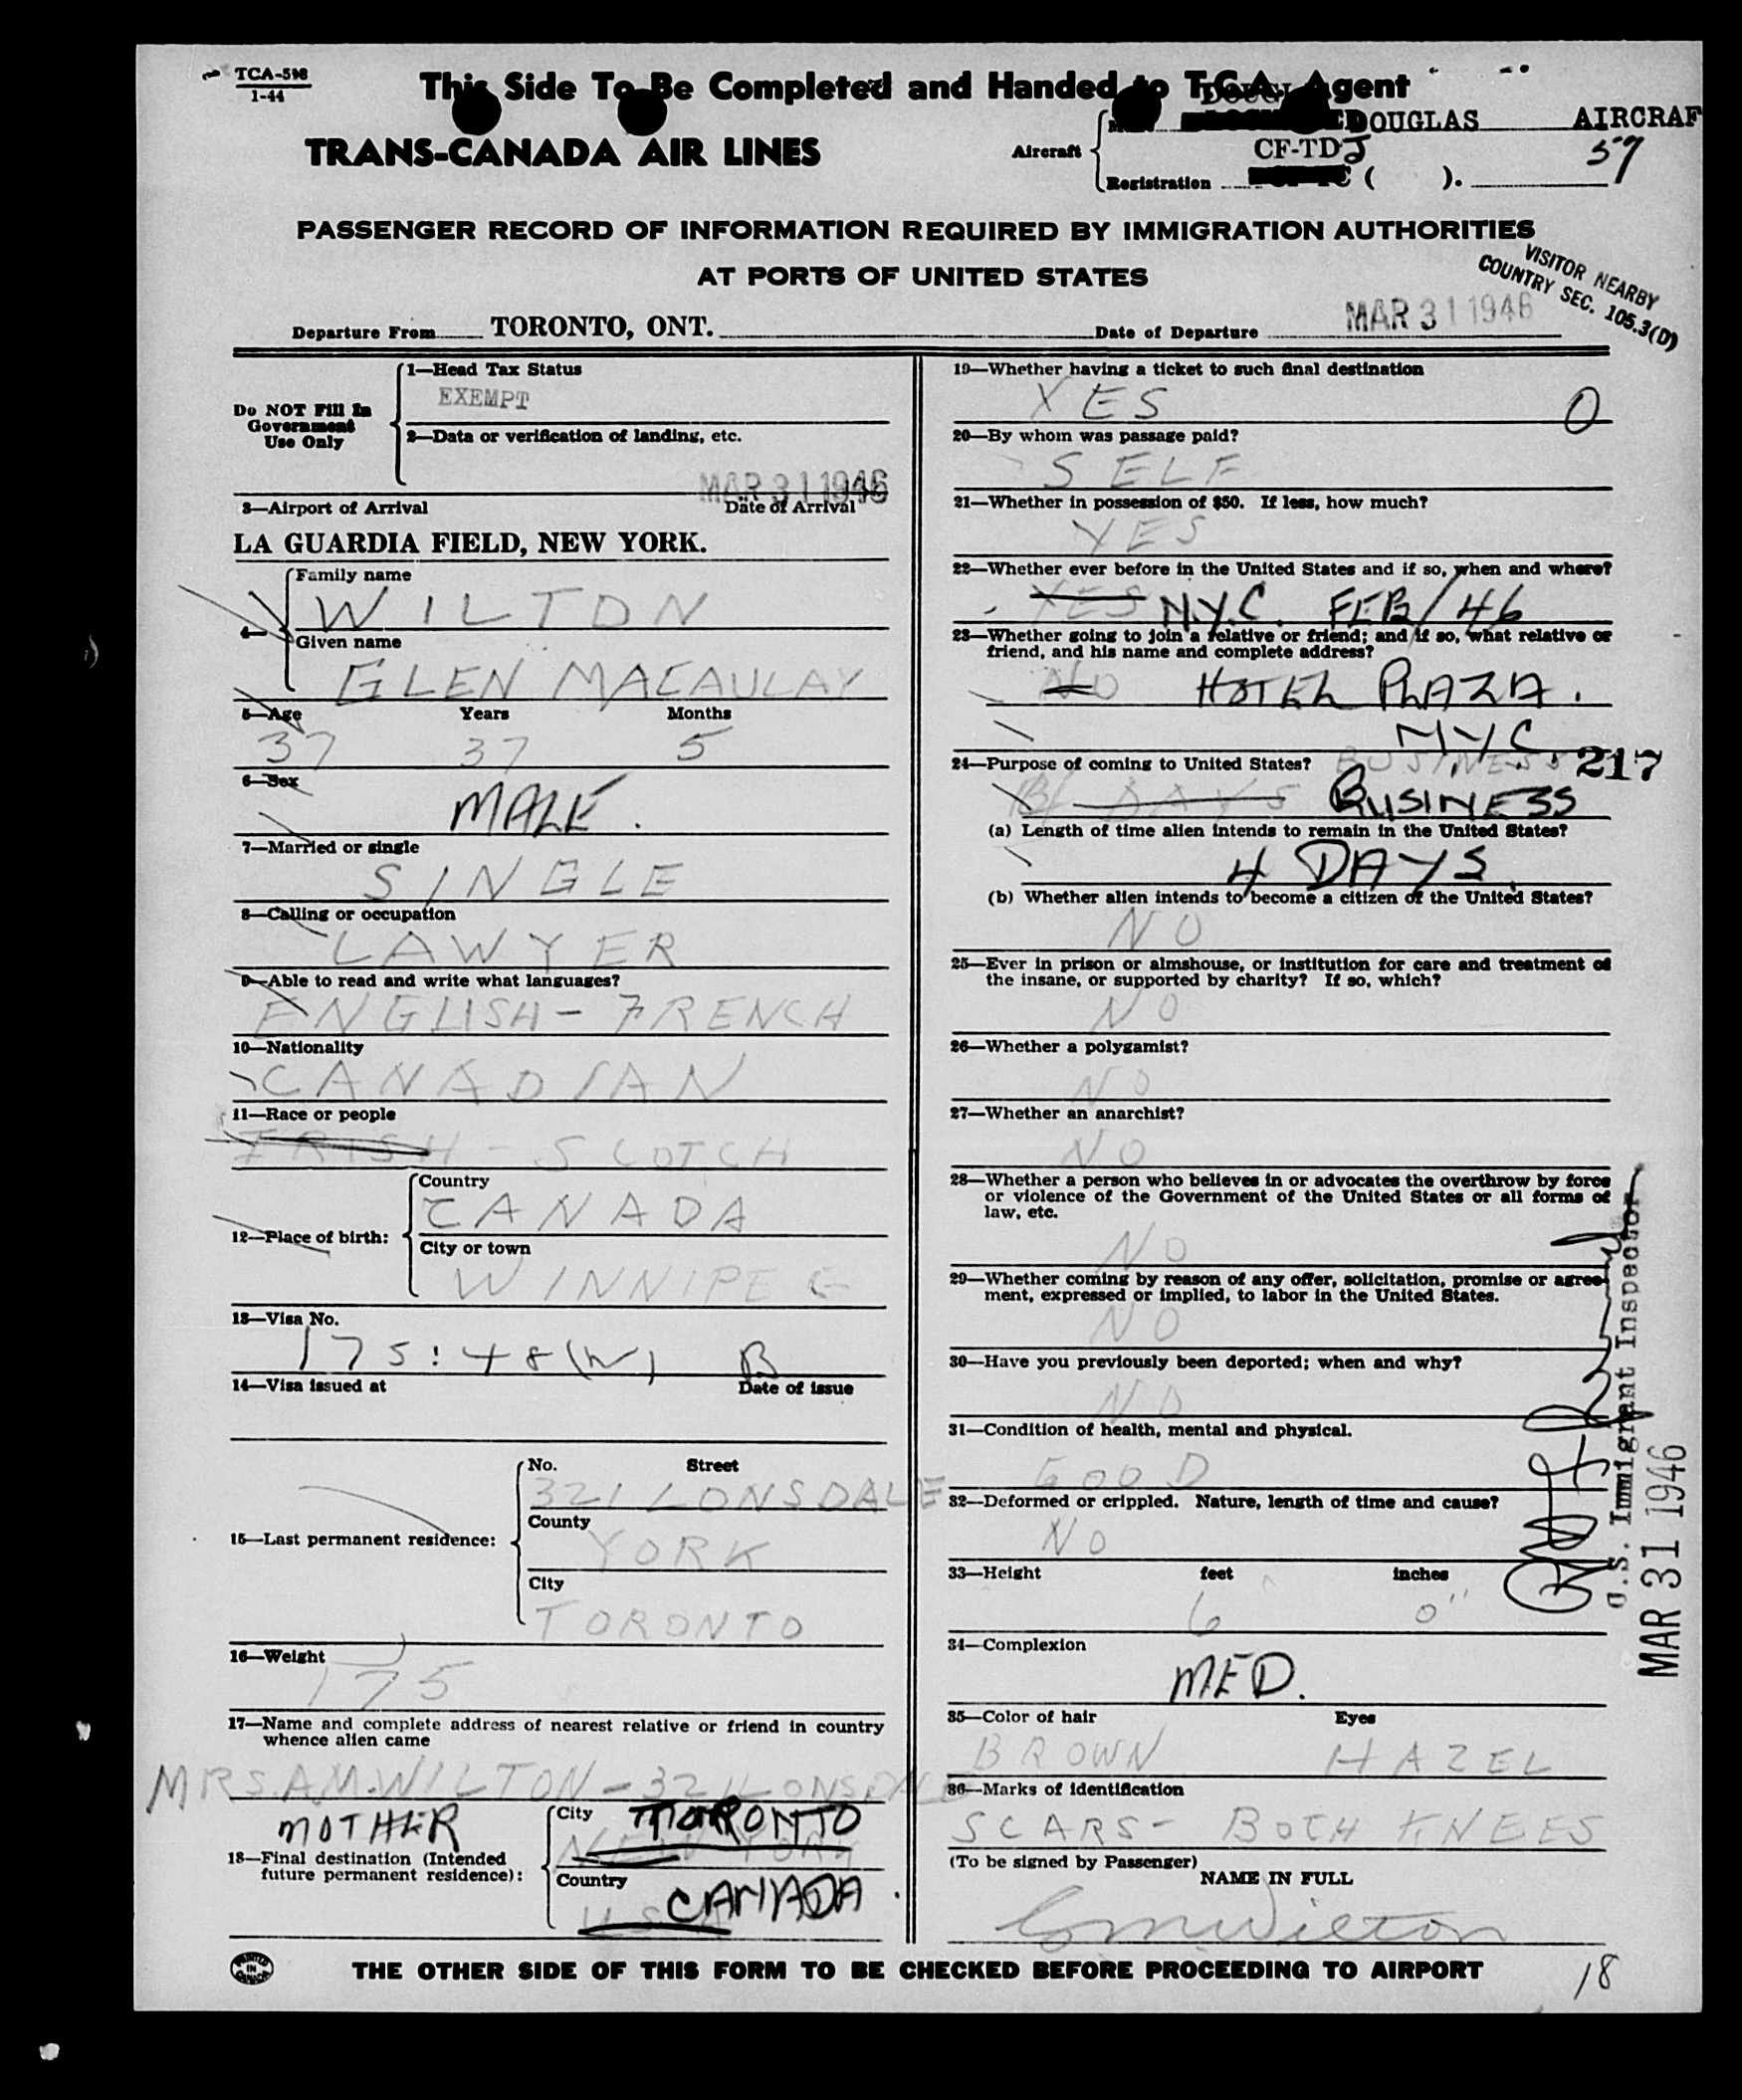 TCA-598
1-44
This Side To Be Completed and Handed to T.C.A. Agent
TRANS-CANADA AIR LINES
Aircraft
DOUGLAS AIRCRAF
CF-TDJ 57
Registration ( ).
PASSENGER RECORD OF INFORMATION REQUIRED BY IMMIGRATION AUTHORITIES
AT PORTS OF UNITED STATES
VISITOR NEARBY
COUNTRY SEC. 105.3(D)
Departure From TORONTO, ONT. Date of Departure MAR 31 1946
Do NOT Fill In
Government
Use Only
1—Head Tax Status
EXEMPT
2—Data or verification of landing, etc.
MAR 31 1946
3—Airport of Arrival Date of Arrival
LA GUARDIA FIELD, NEW YORK.
4—
Family name
WILTON
Given name
GLEN MACAULAY
5—Age Years Months
37 37 5
6—Sex
MALE.
7—Married or single
SINGLE
8—Calling or occupation
LAWYER
9—Able to read and write what languages?
ENGLISH - FRENCH
10—Nationality
CANADIAN
11—Race or people
IRISH - SCOTCH
12—Place of birth:
Country
CANADA
City or town
WINNIPEG
13—Visa No.
175:48(W) B
14—Visa issued at Date of issue
15—Last permanent residence:
No. Street
321 LONSDALE
County
YORK
City
TORONTO
16—Weight
175
17—Name and complete address of nearest relative or friend in country
whence alien came
MRS. A.M. WILTON - 321 LONSDALE
MOTHER
18—Final destination (Intended
future permanent residence):
City TORONTO
NEW YORK
Country CANADA.
USA
19—Whether having a ticket to such final destination
YES 0
20—By whom was passage paid?
SELF
21—Whether in possession of $50. If less, how much?
YES
22—Whether ever before in the United States and if so, when and where?
YES N.Y.C. FEB/46
23—Whether going to join a relative or friend; and if so, what relative or
friend, and his name and complete address?
NO HOTEL PLAZA.
N.Y.C.
24—Purpose of coming to United States? BUSINESS 217
DAYS BUSINESS
(a) Length of time alien intends to remain in the United States?
4 DAYS.
(b) Whether alien intends to become a citizen of the United States?
NO
25—Ever in prison or almshouse, or institution for care and treatment of
the insane, or supported by charity? If so, which?
NO
26—Whether a polygamist?
NO
27—Whether an anarchist?
NO
28—Whether a person who believes in or advocates the overthrow by force
or violence of the Government of the United States or all forms of
law, etc.
NO
29—Whether coming by reason of any offer, solicitation, promise or agree-
ment, expressed or implied, to labor in the United States.
NO
30—Have you previously been deported; when and why?
NO
31—Condition of health, mental and physical.
GOOD
32—Deformed or crippled. Nature, length of time and cause?
NO
33—Height feet inches
6 0"
34—Complexion
MED.
35—Color of hair Eyes
BROWN HAZEL
36—Marks of identification
SCARS - BOTH KNEES
(To be signed by Passenger)
NAME IN FULL
GMWilton
U.S. Immigrant Inspector
MAR 31 1946
PRINTED IN CANADA
THE OTHER SIDE OF THIS FORM TO BE CHECKED BEFORE PROCEEDING TO AIRPORT
18